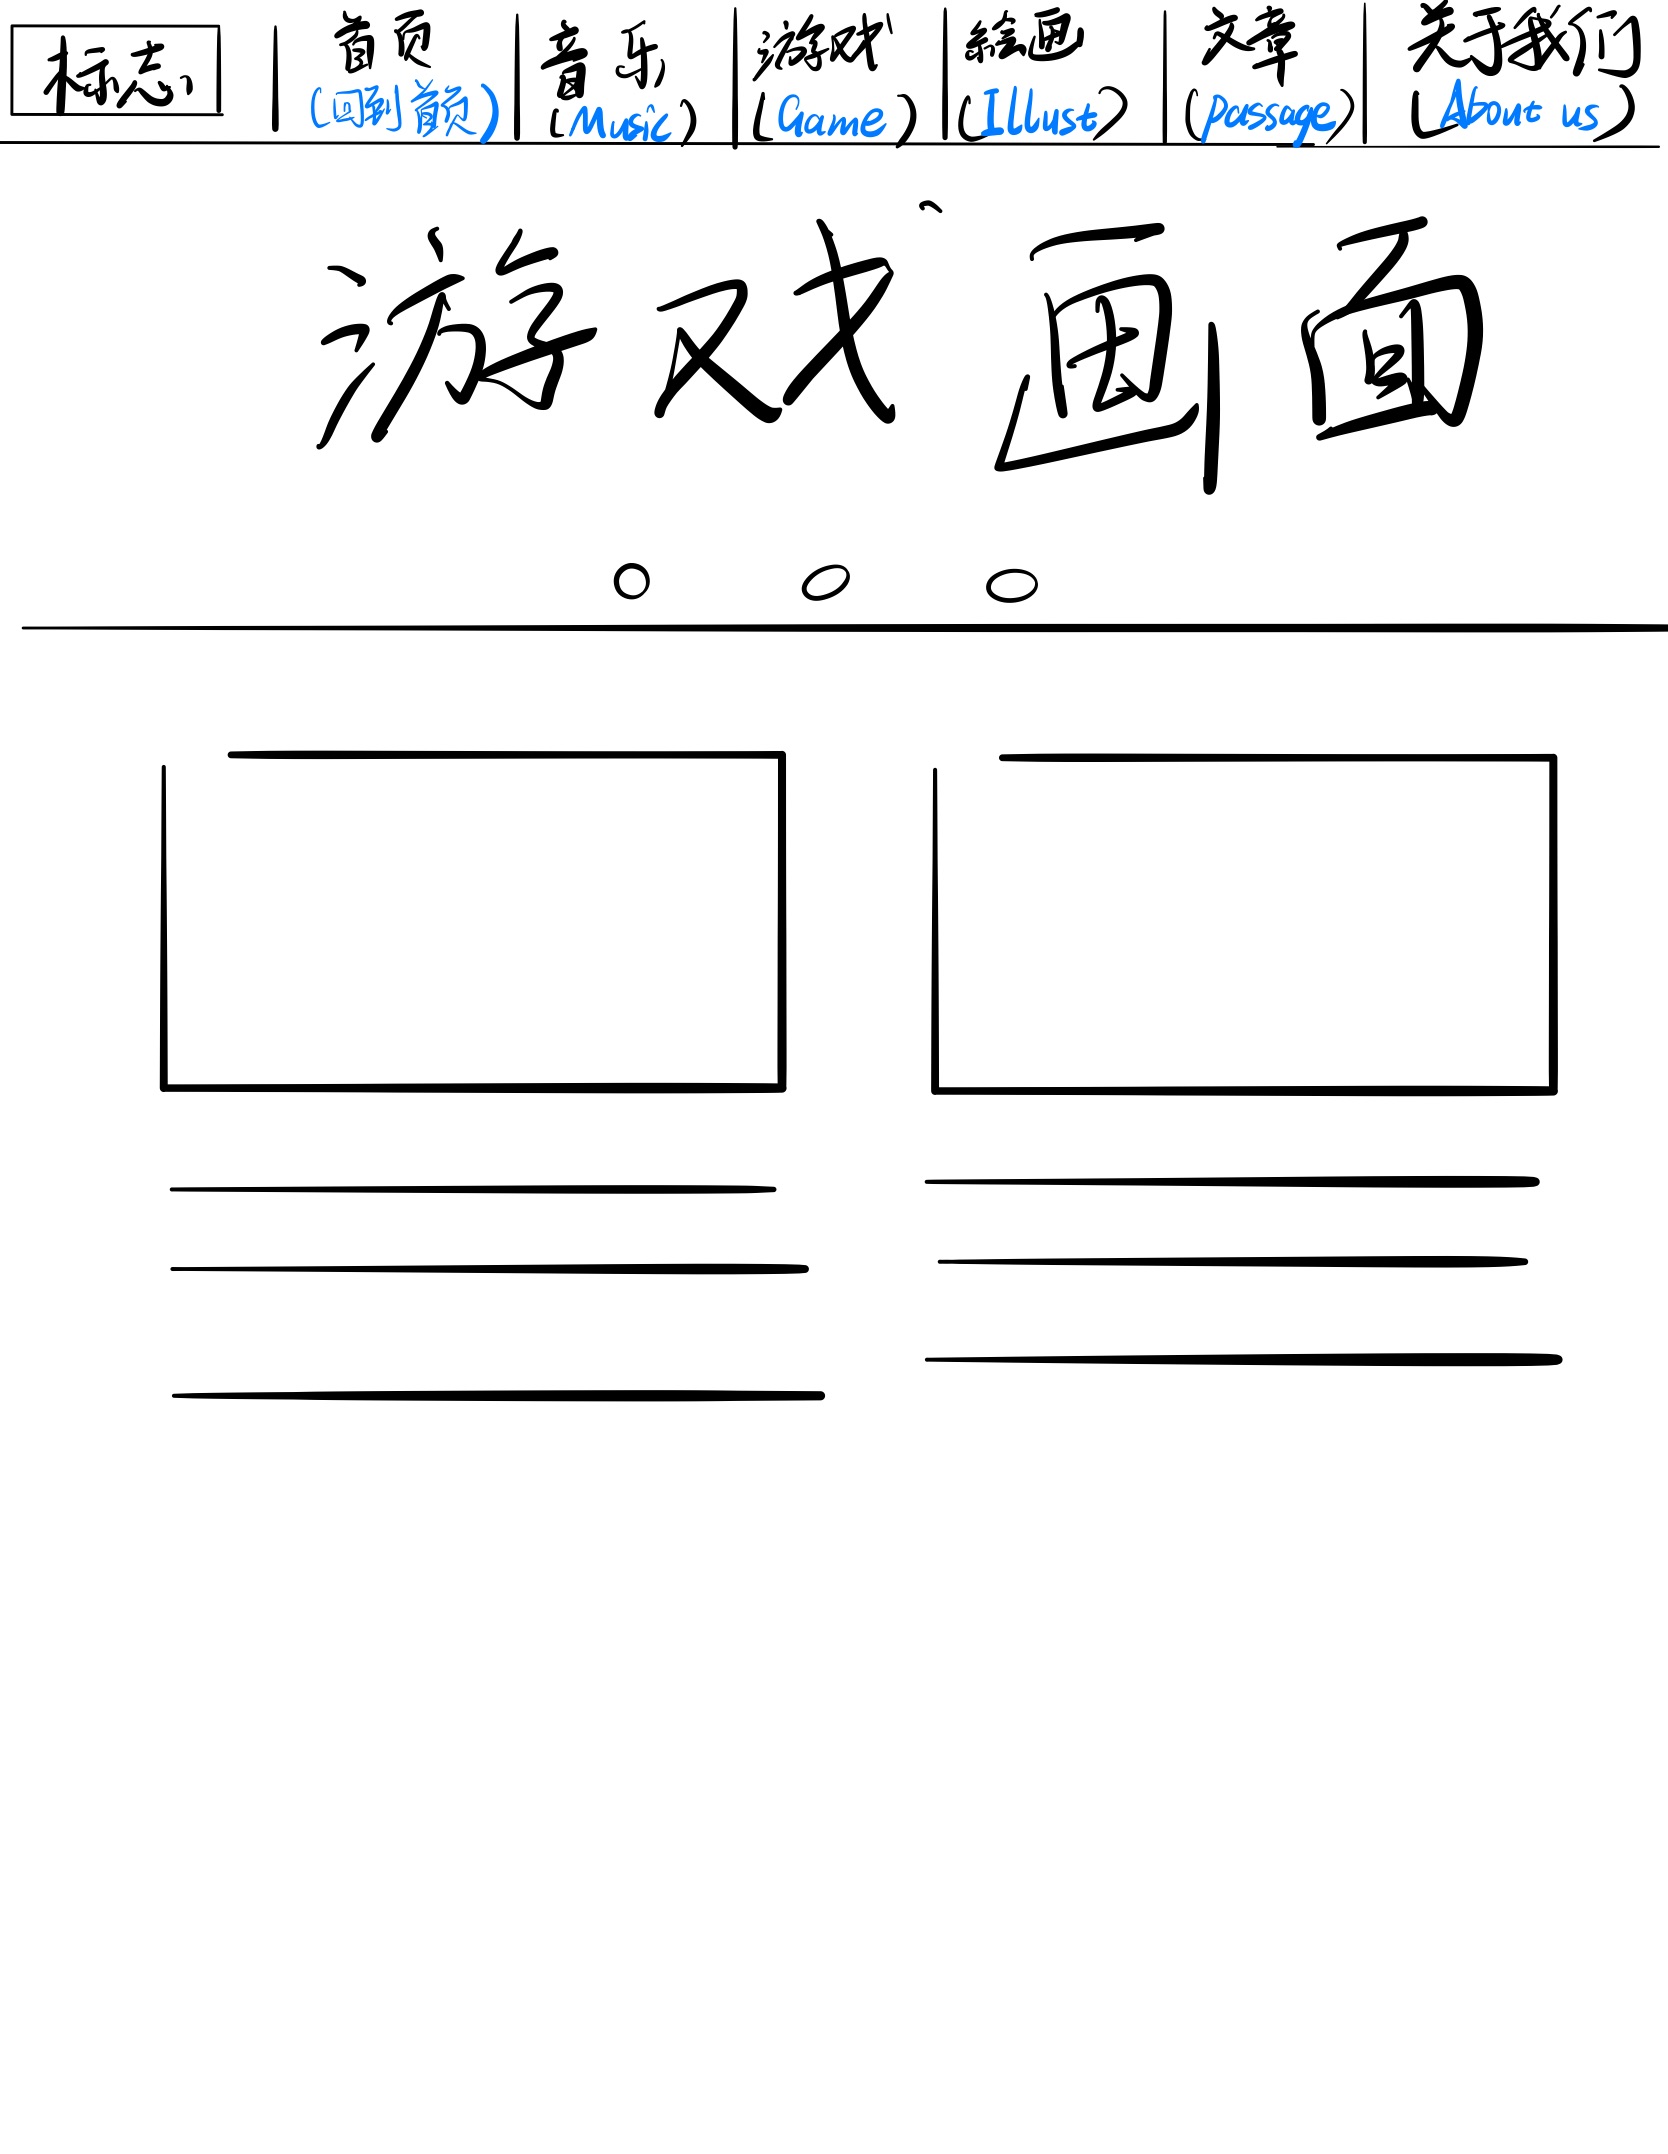 标志
首页
(回到首页)
音乐
(Music)
游戏
(Game)
绘画
(Illust)
文章
(passage)
关于我们
(About us)
游戏画面